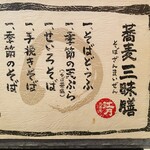 蕎麦三昧膳
そばざんまいぜん
一 そばどうふ
一 季節の天ぷら
一 せいろそば
一 手挽きそば
一 季節のそば